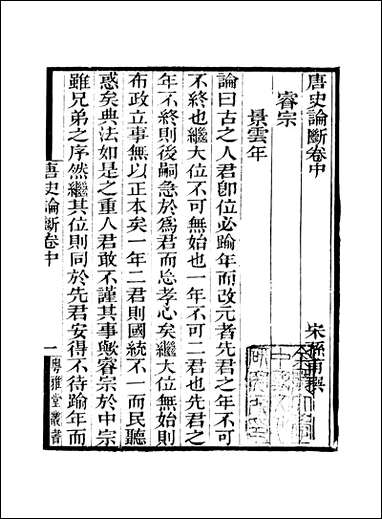 唐史論斷卷中
宋孫甫撰
睿宗
景雲年
論曰古之人君卽位必踰年而改元者先君之年不可
不終也繼大位不可無始也一年不可二君也先君之
年不終則後嗣急於爲君而忘孝心矣繼大位無始則
布政立事無以正本矣一年二君則國統不一而民聽
惑矣典法如是之重人君敢不謹其事歟睿宗於中宗
雖兄弟之序然繼其位則同於先君安得不待踰年而
唐史論斷卷中
一
粤雅堂叢書